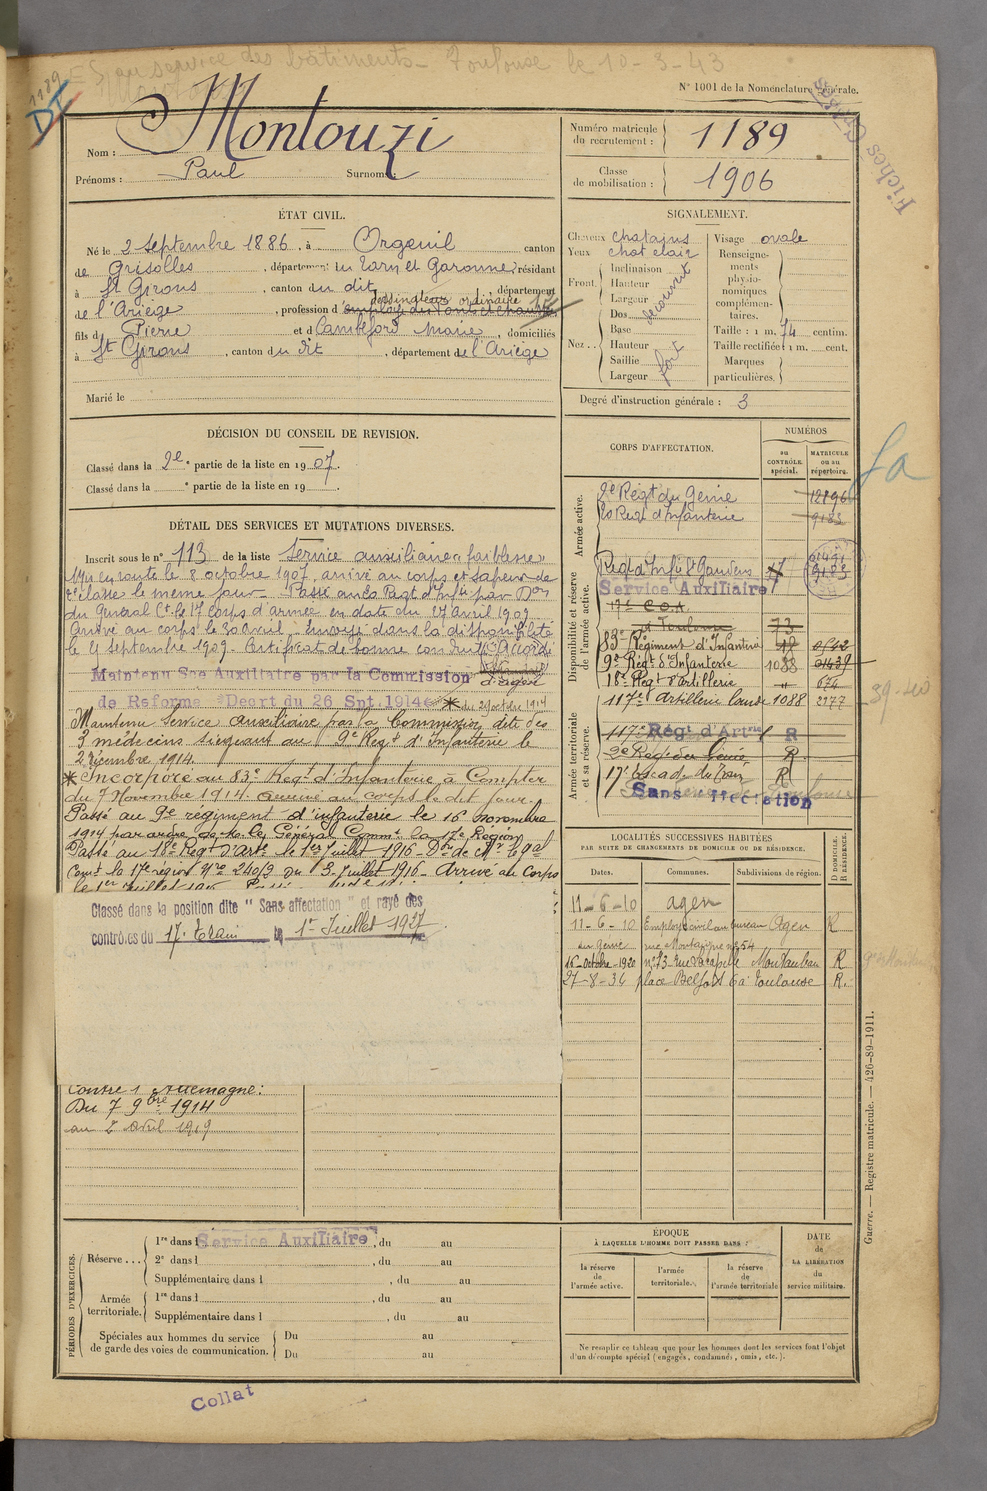 service des bâtiments - Toulouse le 10-3-43
1189
DI
N° 1001 de la Nomenclature générale.
Fiches
Nom : Montouzi
Prénoms : Paul Surnoms
Numéro matricule du recrutement : 1189
Classe de mobilisation : 1906
ÉTAT CIVIL.
Né le 2 septembre 1886, à Orgeuil canton
de Grisolles, département du Tarn et Garonne, résidant
à St Girons, canton du dit, département
dessinateur ordinaire
de l'Ariège, profession d'employé des Ponts et chaussées
fils de Pierre et d Marie, domiciliés
à St Girons, canton du dit, département de l'Ariège
Marié le
SIGNALEMENT.
Cheveux chatains
Yeux chat clair
Front. Inclinaison
Hauteur
Largeur
découvert
Nez. Dos
Base
Hauteur
Saillie
Largeur
fort
Visage ovale
Renseignements physionomiques complémentaires.
Taille : 1 m. 74 centim.
Taille rectifiée : 1 m. cent.
Marques particulières.
Degré d'instruction générale : 3
DÉCISION DU CONSEIL DE REVISION.
Classé dans la 2e partie de la liste en 1907.
Classé dans la e partie de la liste en 19
DÉTAIL DES SERVICES ET MUTATIONS DIVERSES.
Inscrit sous le n° 113 de la liste Service auxiliaire faiblesse
Mis en route le 8 octobre 1907, arrivé au corps et sapeur de
2e classe le même jour. Passé au 20 Régt d'Infie par Don
du Général Ct le 17 Corps d'armée en date du 27 avril 1909
Arrivé au corps le 30 avril. Envoyé dans la disponibilité
le 4 septembre 1909. Certificat de bonne conduite Accordé
Maintenu Sce Auxiliaire par la Commission d'agen
de Réforme Décret du 26 Spt. 1914 du 29 octobre 1914
Maintenu Service auxiliaire par la Commission dite des
3 médecins siégeant au 9e Régt d'Infanterie le
2 Décembre 1914.
Incorporé au 83e Régt d'Infanterie à Compter
du 7 Novembre 1914. Arrivé au corps le dit jour.
Passé au 9e régiment d'infanterie le 16 novembre
1914 par ordre de Mr le Général Commt la 17e Région
Passé au 18e Régt d'Artie le 1er Juillet 1916 - Don de Mr le Gal
Comt la 17e région Nro 240/3 du 3 Juillet 1916 - Arrivé au Corps
Classé dans la position dite " Sans affectation " et rayé des
contrôles du 17e Train le 1er Juillet 1927
Contre l'Allemagne :
Du 7 9bre 1914
au 2 avril 1919
CORPS D'AFFECTATION.
NUMÉROS
au CONTRÔLE spécial.
MATRICULE ou au répertoire.
Armée active.
2e Régt du Génie 12896
20 Régt d'Infanterie 9133
Disponibilité et réserve de l'armée active.
Régt d'Infie St Gaudens
Service Auxiliaire
17e C.O.A.
Toulouse 73
83e Régiment d'Infanterie
9e Régt d'Infanterie 1088
18e Régt d'Artillerie 674
117e Artillerie lourde 1088 2777
Armée territoriale et sa réserve.
117e Régt d'Artie R
2e Régt du Génie R
17e Escade du Train R
Sans affectation
LOCALITÉS SUCCESSIVES HABITÉES
PAR SUITE DE CHANGEMENTS DE DOMICILE OU DE RÉSIDENCE.
D DOMICILE. R RÉSIDENCE.
Dates. Communes. Subdivisions de région.
11-6-10 agen
11-6-10 Employé civil au bureau Agen R
du génie rue Montaigne n° 54
16-octobre-1920 n° 73 rue Lacapelle Montauban R
27-8-34 place Belfort 6a Toulouse R.
Guerre. — Registre matricule. — 426-89-1911.
PÉRIODES D'EXERCICES.
Réserve ... 1re dans l Service Auxiliaire, du au
2e dans l , du au
Supplémentaire dans l , du au
Armée territoriale. 1re dans l , du au
Supplémentaire dans l , du au
Spéciales aux hommes du service de garde des voies de communication. Du au
Du au
ÉPOQUE
À LAQUELLE L'HOMME DOIT PASSER DANS :
la réserve de l'armée active.
l'armée territoriale.
la réserve de l'armée territoriale
DATE de LA LIBÉRATION du service militaire.
Ne remplir ce tableau que pour les hommes dont les services font l'objet
d'un décompte spécial (engagés, condamnés, omis, etc.).
Collat